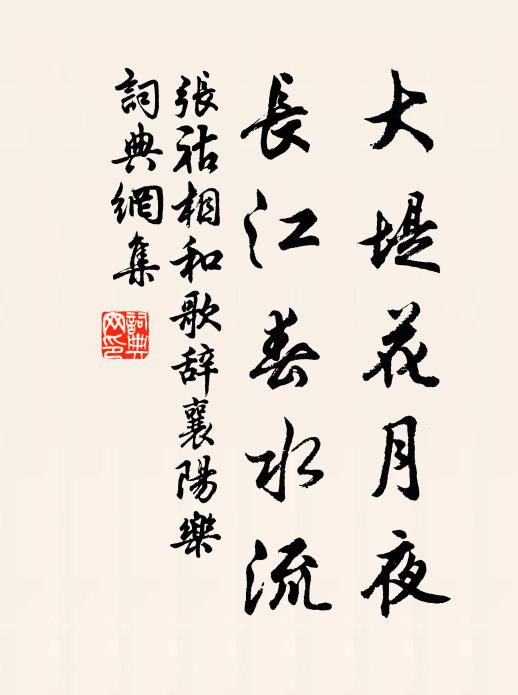 大堤花月夜
長江春水流
張祜相和歌辞襄陽樂
詞典網集
詞典網印